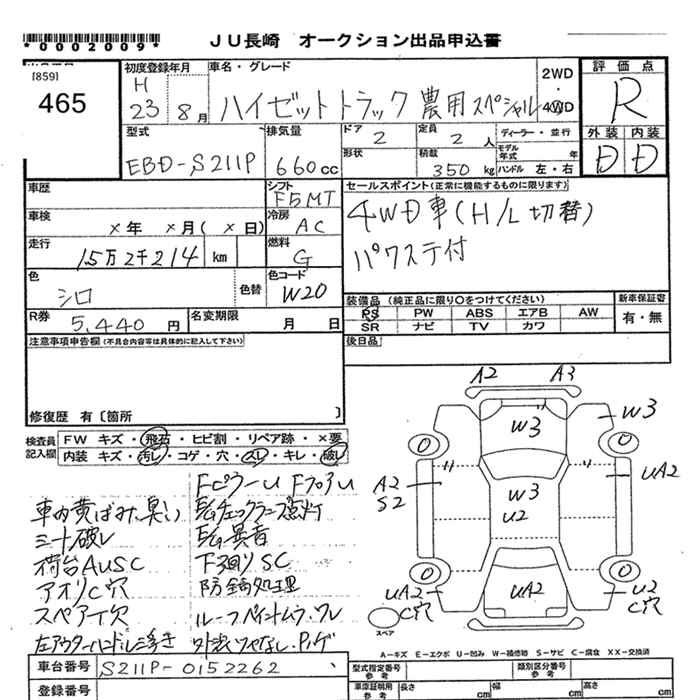 *0002009*
JU長崎 オークション出品申込書
[859]
465
初度登録年月
H
23 8月
車名・グレード
ハイゼットトラック 農用スペシャル
2WD
・
4WD
評価点
R
外装 内装
D D
型式
EBD-S211P
排気量
660cc
ドア
2
定員
2人
ディーラー・並行
形状
積載
350kg
モデル年式 年
ハンドル 左・右
車歴
シフト
F5MT
車検
×年 ×月(×日)
冷房
AC
走行
15万2千214 km
燃料
G
色
シロ
色替
色コード
W20
R券
5,440円
名変期限
月 日
セールスポイント(正常に機能するものに限ります)
4WD車(H/L切替)
パワステ付
装備品(純正品に限り○をつけてください)
新車保証書
PS PW ABS エアB AW
SR ナビ TV カワ
有・無
後日品
注意事項申告欄(不具合内容等は具体的に記入して下さい)
修復歴 有〔箇所 〕
検査員記入欄
FW キズ・飛石・ヒビ割・リペア跡・×要
内装 キズ・汚レ・コゲ・穴・スレ・キレ・破レ
FピラーU FフロアU
車内黄ばみ、臭い
E/Gチェックランプ点灯
シート破レ
E/G異音
荷台AUSC
下廻りSC
アオリC穴
防錆処理
スペアT欠
ルーフペイントムラ・ワレ
A2 A3
W3
W3
0 0
A2
S2
UA2
W3
U2
0 0
UA2
C穴
UA2
U2
C穴
スペア
A-キズ E-エクボ U-凹み W-補修物 S-サビ C-腐食 XX-交換済
車台番号
S211P-0152262
登録番号
型式指定番号
参考
類別区分番号
参考
車庫証明用
参考
長さ cm
幅 cm
高さ cm